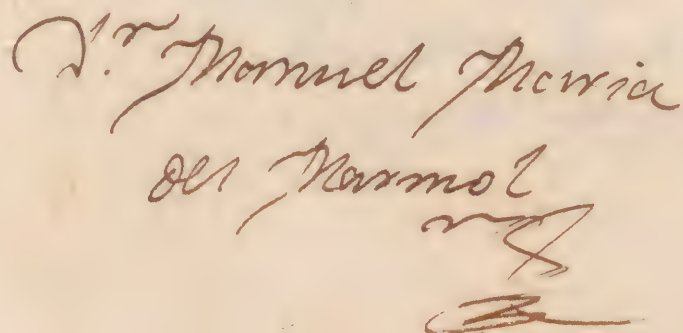 D.r Manuel Maria
del Marmol